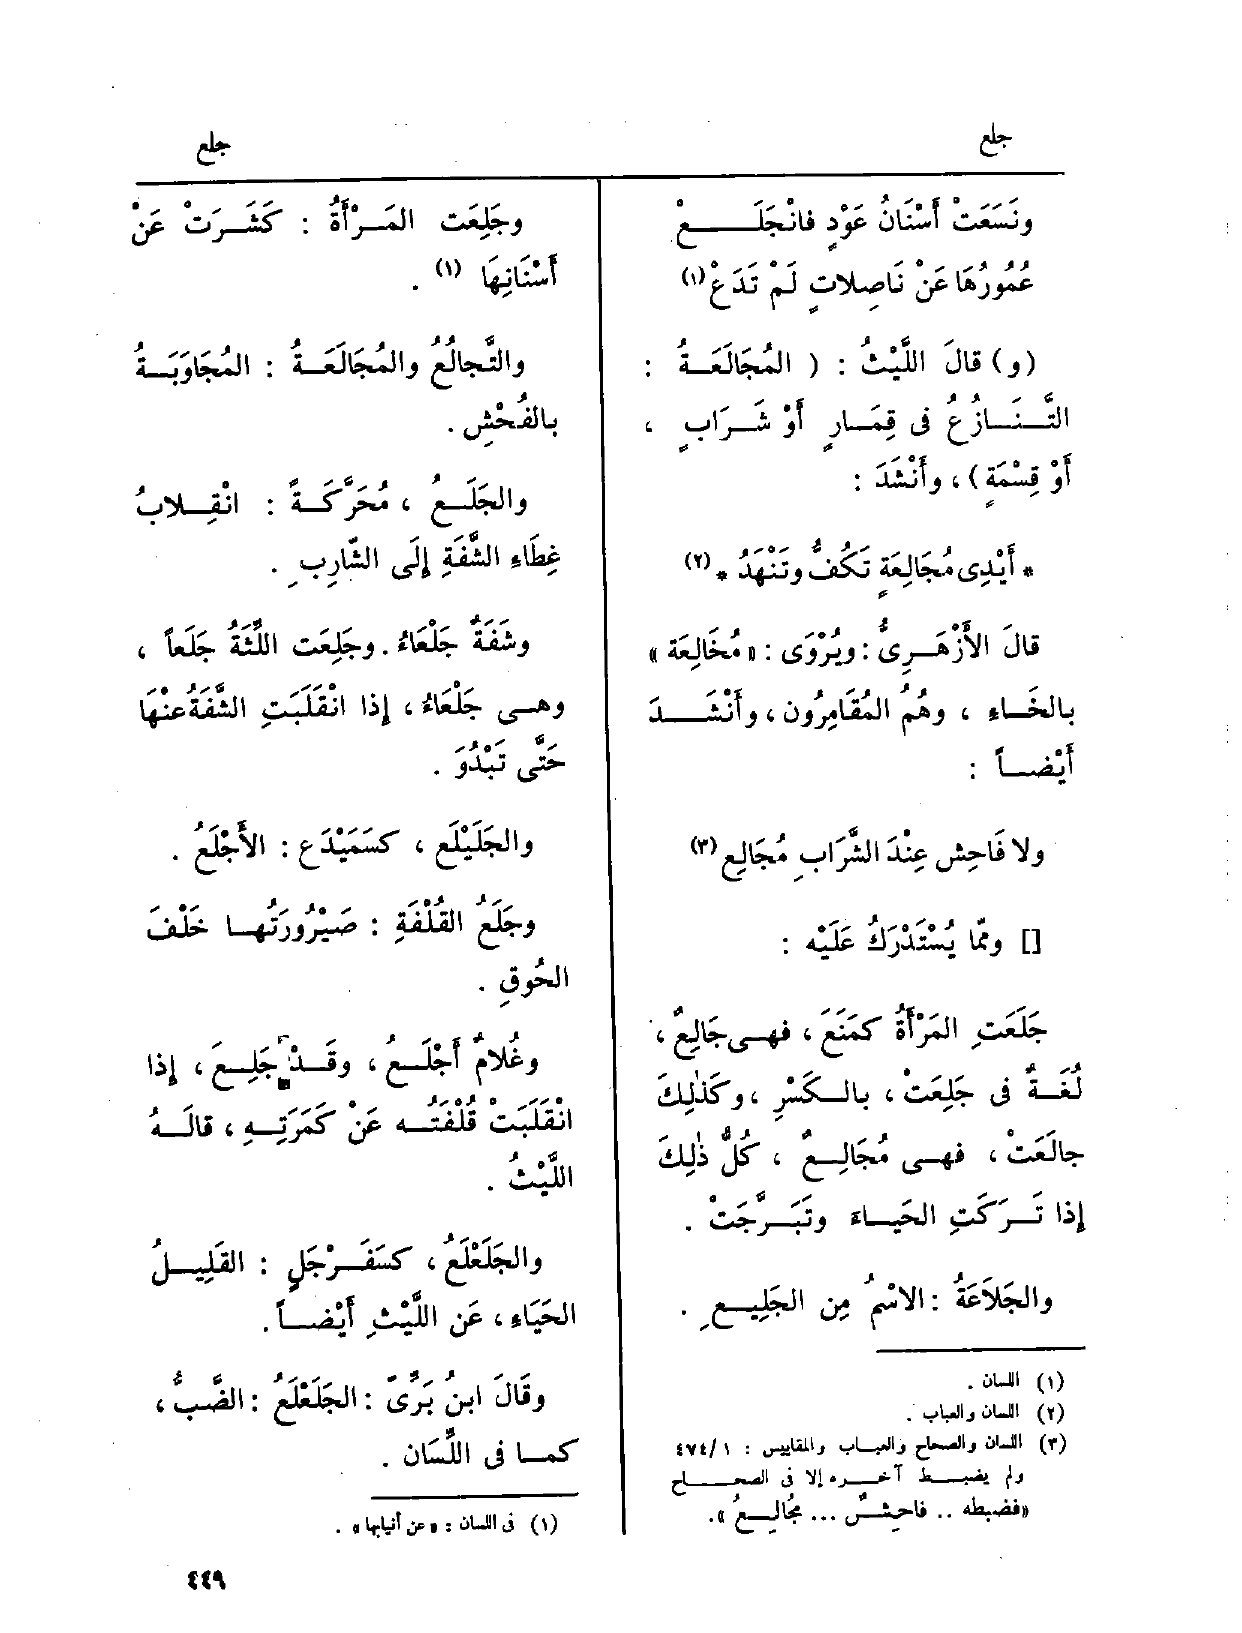 جلع
جلع
ونَسَعَتْ أَسْنَانُ عَوْدٍ فانْجَلَـــــعْ
عُمُورُهَا عَنْ نَاصِلاتٍ لَمْ تَدَعْ (١)
(و) قالَ اللَّيْثُ : ( المُجَالَعَـةُ :
التَّـنَـازُعُ فى قِمَـارٍ أَوْ شَـرَابٍ ،
أَوْ قِسْمَةٍ ) ، وأَنْشَدَ :
* أَيْدِى مُجَالِعَةٍ تَكُفُّ وتَنْهَدُ * (٢)
قالَ الأَزْهَـرِىُّ : ويُرْوَى : « مُخَالِعَة »
بالخَـاءِ ، وهُمُ المُقَامِرُون ، وأَنْشَـــدَ
أَيْضـــاً :
ولا فَاحِش عِنْدَ الشَّرَابِ مُجَالِع (٣)
[] وممّا يُسْتَدْرَكُ عَلَيْه :
جَلَعَتِ المَرْأَةُ كمَنَعَ ، فهـى جَالِعٌ ،
لُغَـةٌ فى جَلِعَتْ ، بالـكَسْرِ ، وكَذٰلِكَ
جالَعَتْ ، فهـى مُجَالِـعٌ ، كُلُّ ذٰلِكَ
إذا تَـرَكَتِ الحَيـاءَ وتَبَـرَّجَتْ .
والجَلاَعَةُ : الاسْمُ مِن الجَلِيـعِ .
(١) اللسان .
(٢) اللسان والعباب .
(٣) اللسان والصحاح والعبـاب والمقاييس : ١ /٤٧٤
ولم يضبـط آخـره إلا فى الصحـــاح
«فضبطه .. فاحِشٌ ... مُجَالِـعُ».
وجَلِعَت المَـرْأَةُ : كَشَـرَتْ عَنْ
أَسْنَانِهَا (١) .
والتَّجالُعُ والمُجَالَعَـةُ : المُجَاوَبَـةُ
بالفُحْشِ .
والجَلَـعُ ، مُحَرَّكَـةً : انْقِـلابُ
غِطَاءِ الشَّفَةِ إِلَى الشّارِبِ .
وشَفَةٌ جَلْعَاءُ . وجَلِعَت اللِّثَةُ جَلَعاً ،
وهـى جَلْعَاءُ ، إذا انْقَلَبَتِ الشَّفَةُ عنْهَا
حَتَّى تَبْدُوَ .
والجَلَيْلَع ، كسَمَيْدَع : الأَجْلَعُ .
وجَلَعُ القُلْفَةِ : صَيْرُورَتُهـا خَلْفَ
الحُوقِ .
وغُلامٌ أَجْلَـعُ ، وقَـدْ جَلِـعَ ، إذا
انْقَلَبَتْ قُلْفَتُـه عَنْ كَمَرَتِـهِ ، قالَـهُ
اللَّيْثُ .
والجَلَعْلَعُ ، كسَفَـرْجَلٍ : القَلِيـلُ
الحَيَاءِ ، عَن اللَّيْثِ أَيْضـــاً .
وقَالَ ابنُ بَرِّىّ : الجَلَعْلَعُ : الضَّبُّ ،
كمـا فى اللِّسَان .
(١) فى اللسان : « عن أنيابها » .
٤٤٩